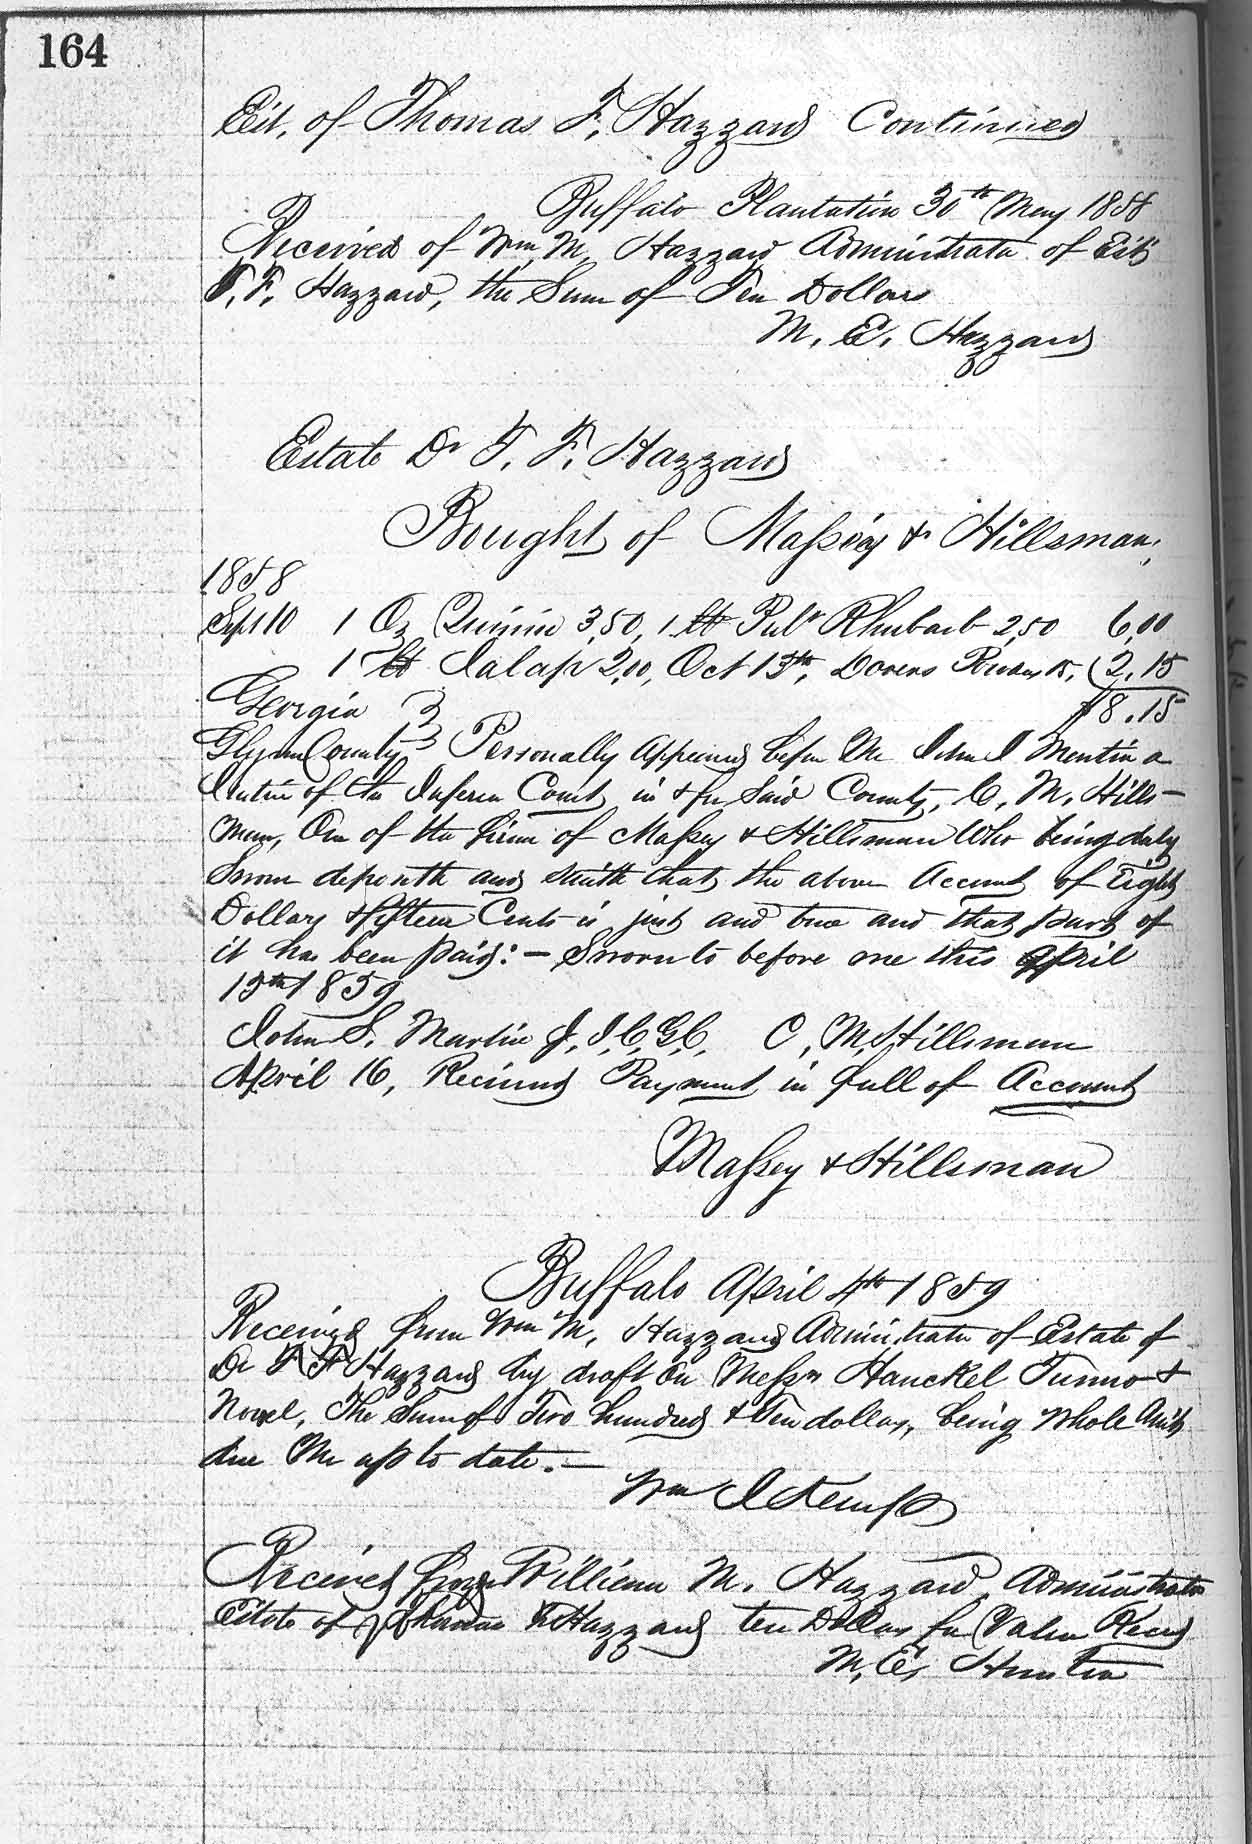 164
Est. of Thomas F. Hazzard Continued
Buffalo Plantation 30th May 1858
Received of Wm. M. Hazzard Administrator of Est
T. F. Hazzard, the Sum of Ten Dollars
M. E. Hazzard
Estate Dr T. F. Hazzard
Bought of Massey & Hillsman,
1858
Sept 10 1 Oz Quinine 3,50, 1 lb Pulv Rhubarb 2,50 6,00
1 lb Jalap 2,00, Oct 13th, Dovers Powders 15, 2.15
Georgia } $8.15
Glynn County } Personally Appeared before Me John S Martin a
Justice of the Inferior Court in & for Said County, C, M. Hills-
man, One of the firm of Massey & Hillsman Who being duly
Sworn deposeth and saith that the above Account of Eight
Dollars & fifteen Cents is just and true and that part of
it has been paid: — Sworn to before me this April
15th 1859
John S. Martin J. I. C, G. C, C, M, Hillsman
April 16, Received Payment in full of Account
Massey & Hillsman
Buffalo April 4th 1859
Received from Wm M. Hazzard Administrator of Estate of
Dr T F Hazzard by draft on Messrs Hanckel Tunno &
Nowel, The Sum of Two hundred & Ten dollars, being whole Amt
due Me up to date. —
Wm J Kemp
Received from William M. Hazzard Administrator
Estate of Thomas F Hazzard ten Dollars for Value Recd
M, E, Hunter